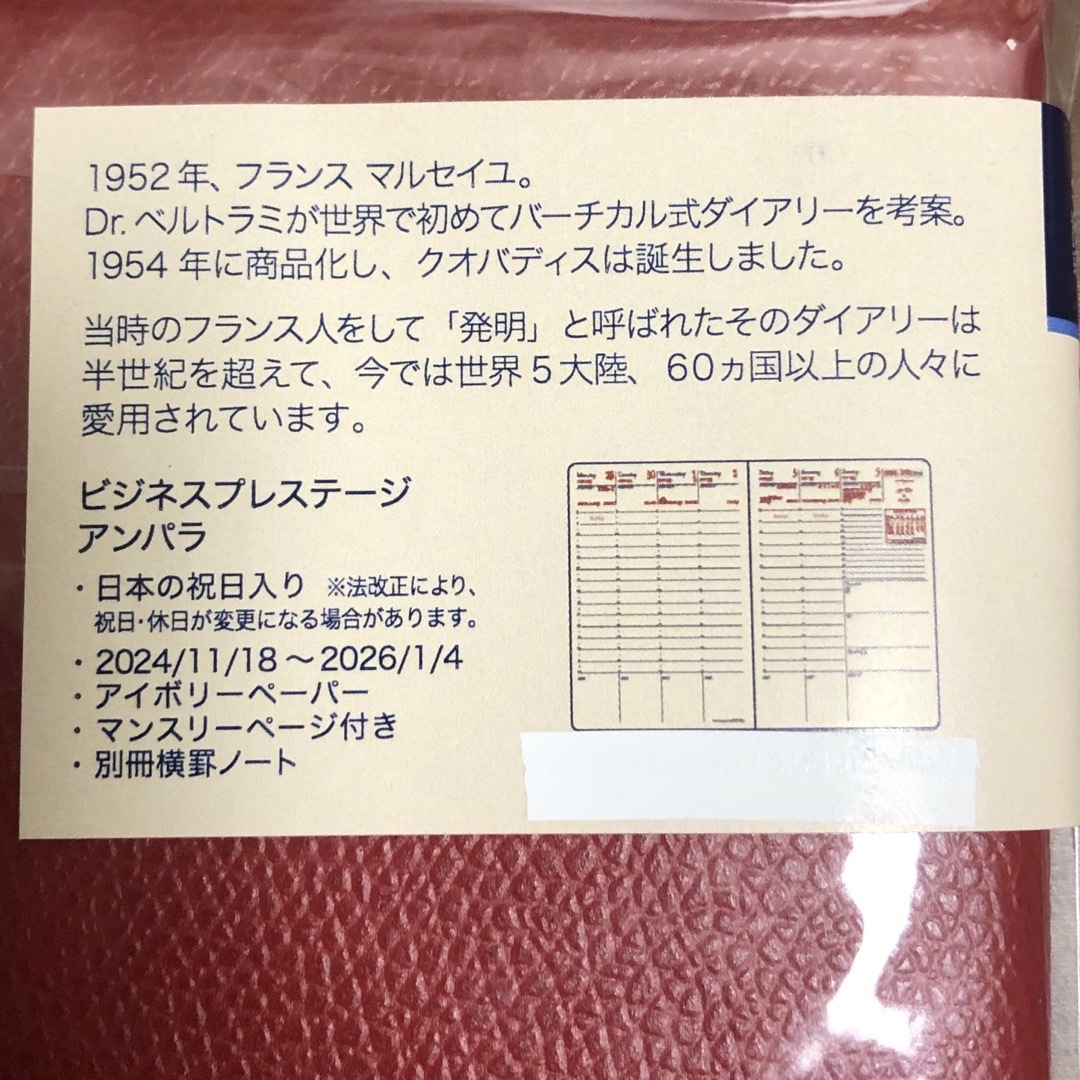 1952年、フランス マルセイユ。
Dr.ベルトラミが世界で初めてバーチカル式ダイアリーを考案。
1954年に商品化し、クオバディスは誕生しました。
当時のフランス人をして「発明」と呼ばれたそのダイアリーは
半世紀を超えて、今では世界5大陸、60ヵ国以上の人々に
愛用されています。
ビジネスプレステージ
アンパラ
・日本の祝日入り ※法改正により、
祝日・休日が変更になる場合があります。
・2024/11/18～2026/1/4
・アイボリーペーパー
・マンスリーページ付き
・別冊横罫ノート